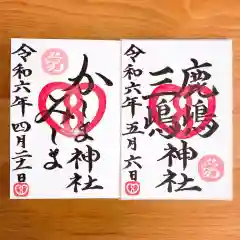 かしま神社
みしま
令和六年四月二十一日
鹿嶋神社
三嶋
令和六年五月六日